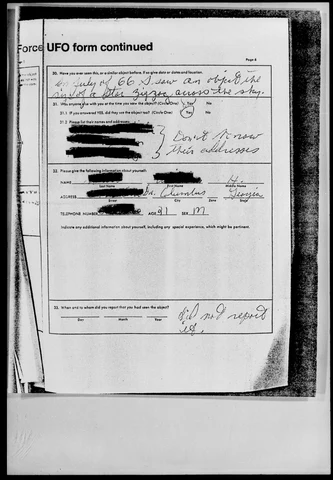 Force UFO form continued
Page 8
20. Have you ever seen this, or a similar object before. If so give date or dates and location.
In July of 66 I saw an object the
size of a star zigzag across the sky.
21. Was anyone else with you at the time you saw the object? (Circle One) Yes No
21.1 If you answered YES, did they see the object too? (Circle One) Yes No
21.2 Please list their names and addresses:
Don't know
their addresses
22. Please give the following information about yourself:
NAME H.
Last Name First Name Middle Name
ADDRESS Dr. Columbus Georgia
Street City Zone State
TELEPHONE NUMBER AGE 31 SEX M
Indicate any additional information about yourself, including any special experience, which might be pertinent.
23. When and to whom did you report that you had seen the object?
did not report
it.
Day Month Year